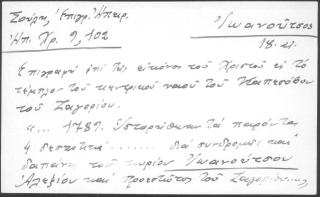 Σούλη, Ἐπιγρ. Ἠπειρ.
Ἠπ. Χρ. 9, 102
Ἰωανούτσος
18 αἰ.
Ἐπιγραφή ἐπί τῆς εἰκόνος τοῦ Χριστοῦ εἰς τό
τέμπλον τοῦ κεντρικοῦ ναοῦ τοῦ Παπεσόβου
τοῦ Ζαγορίου.
"... 1789. Ὑστορήθηκαν τά παρόντα
ἡ δεσποτικά ....... διά συνδρομῆς καί
δαπάνης τοῦ κυρίου Ἰωανούτσου
Ἀλεξίου καί προεστῶτος τοῦ Ζαγορίου....